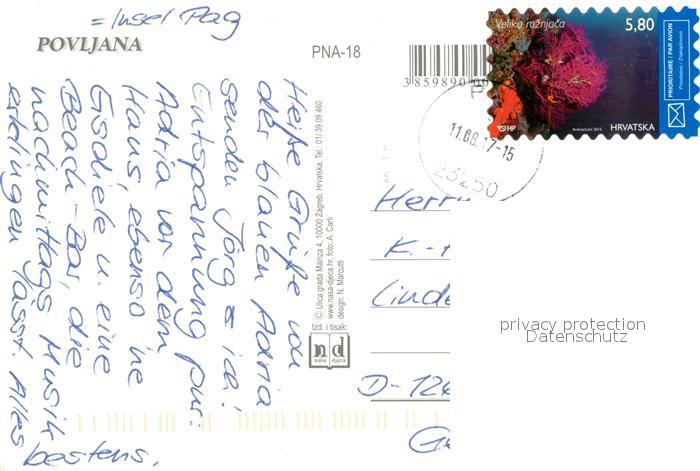 = Insel Pag
POVLJANA
PNA-18
Heiße Grüße von
der blauen Adria
senden Jörg + ich!
Entspannung pur:
Adria vor dem
Haus, ebenso ne
Eisdiele u. eine
Beach-Bar, die
nachmittags Musik
erklingen lässt. Alles
bestens.
© Ulica grada Mainza 4, 10000 Zagreb, Hrvatska, Tel.: 01/ 39 09 460
www.nasa-djeca.hr, foto: A. Carli
design: N. Marcutti
Izd. i tisak:
n d
naša djeca
Velika rožnjača
5,80
PRIORITAIRE / PAR AVION
Prioritetno / Zrakoplovom
HP
HRVATSKA
11.08.17-15
23250
Herrn
K.-
Linde
D-126
Ge
privacy protection
Datenschutz